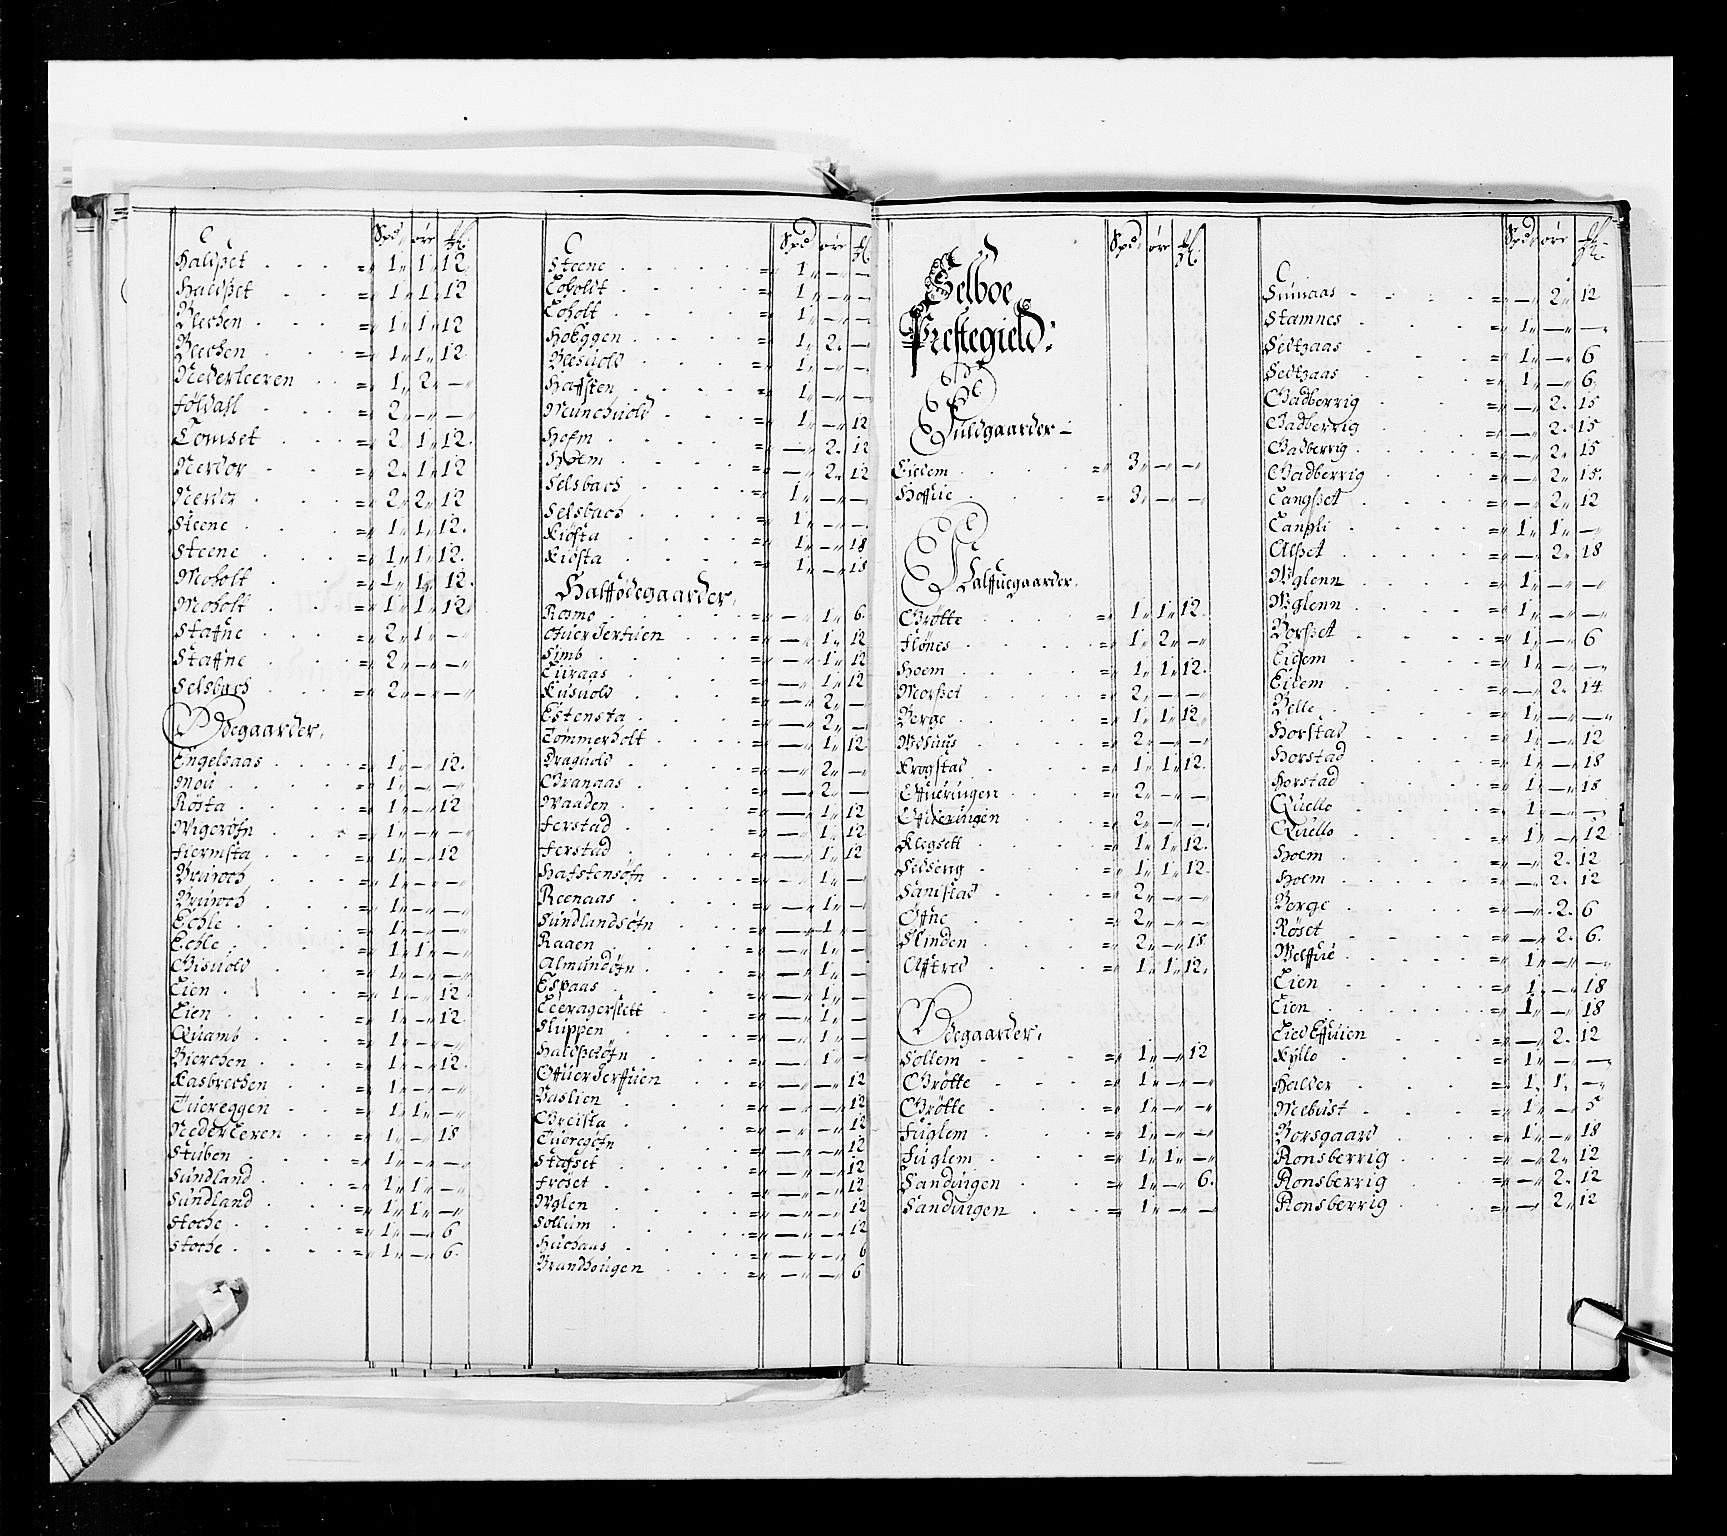 Spd, öre
Haldset = 1,, 1,, 12
Haldset = 1,, 1,, 12
Blechen = 1,, 1,, 12
Blechen = 1,, 1,, 12
Nederleeren = 1,, 2,, —
földahl = 2,, — —
Tomset = 2,, 1,, 12
Nervor = 2,, 1,, 12
Nervor = 2,, 2,, 12
Steene = 1,, 1,, 12
Steene = 1,, 1,, 12
Moholt = 1,, 1,, 12
Moholt = 1,, 1,, 12
Staffne = 2,, 1,, —
Staffne = 2,, — —
Selsbach = 2,, — —
Ødegaarder,
Engelsaas = 1,, — 12
Moü = 1,, — —
Rösta = 1,, — 12
Wigeröfn = 1,, — —
fiermsta = 1,, — 12
Brüroch = 1,, — —
Brüroch = 1,, — —
Echle = 1,, — —
Echle = 1,, 1,, —
Gisvold = 1,, — —
Eien = 1,, — 12
Eien = 1,, — 12
Quamb = 1,, — —
Bierchen = 1,, — 12
Kasbrechen = 1,, — —
Tuereggen = 1,, 1,, —
Nederleren = 1,, — 18
Stüben = 1,, — —
Sundland = 1,, 1,, —
Sundland = 1,, 1,, —
Stoche = 1,, — 6
Stoche = 1,, — 6
Spd öre
Steene = 1,, — —
Loholdt = 1,, — —
Loholt = 1,, — —
Hoeggen = 1,, 2,, —
Bleesvold = 1,, — —
Haffsten = 1,, — —
Münchüold = 1,, — 12
Hofm = — 2,, 12
Hoem = — 2,, 12
Selsbach = 1,, — —
Selsbach = 1,, — —
Kiösta = 1,, — 18
Kiösta = 1,, — 18
Halffödegaarder,
Rosmo = — 1,, 6
Ofuer Jerfuen = — 1,, 12
Simb = — 1,, 12
Euraas = — 1,, 12
Kusuold = — 2,, —
Estensta = — 2,, —
Tømmerholt = — 1,, 12
Draguold = — 2,, —
Granaas = — 2,, —
Waaden = — 1,, 12
ferstad = — 1,, 12
ferstad = — 1,, 12
Hafstensöfn = — 1,, —
Reenaas = — 1,, —
Sundlandsöfn = — 1,, —
Raaen = — 1,, —
Almundöfn = — 1,, —
Espaas = — 1,, —
Leeragerslett = — 1,, —
Sluppen
Haldsetöfn = — 1,, —
Offuer Jerffuen = — — 12
Baslien = — — 12
Greista = — — 12
Tueregöfn = — — 12
Stafset = — — 12
fröset = — — 12
Wglen = — — 12
Sollum = — — 12
Huchaus = — — 6
Brandhougen = — — 6
Spd, öre
Selboe
Prestegield:
Fuldgaarder —
Eidem = 3,, — —
Hoffue = 3,, — —
Halffuegaarder.
Grötte = 1,, 1,, 12
flönes = 1,, 2,, —
Hoem = 1,, 1,, 12
Morset = 2,, — —
Berge = 1,, 1,, 12
Mosuus = 2,, — —
Krogstad = 1,, 1,, 12
Effueringen = 2,, — —
Effueringen = 2,, — —
Klegsett = 1,, 1,, 12
Selseng = 1,, 1,, 12
Sanistad = 2,, — —
Öffne = 2,, — —
Slinden = 2,, — 18
Afftred = 1,, 1,, 12
Ødegaarder,
Sollem = 1,, — 12
Grötte = 1,, — —
Grötte = 1,, — —
fuglem = 1,, — —
fuglem = 1,, 1,, —
Sandüigen = 1,, — 6
Sandüigen = 1,, — —
Spd, öre
Stamnes = 1,, — —
Seltzaas = 1,, — 6
Seltzaas = 1,, — 6
Gadberrig = — 2,, 15
Gadberrig = — 2,, 15
Gadberrig = — 2,, 15
Gadberrig = — 2,, 15
Langset = — 2,, 12
Langli = 1,, 1,, —
Alset = — 2,, 18
Wglenn = 1,, — —
Wglenn = 1,, — —
Borset = 1,, — 6
Eidem = 1,, — —
Eidem = — 2,, 14
Belle = 1,, — —
Horstad = 1,, — 12
Horstad = 1,, — 18
Horstad = 1,, — 18
Quello = 1,, — —
Quello = 1,, — 12
Hoem = — 2,, 12
Hoem = — 2,, 12
Berge = — 2,, 6
Röset = — 2,, 6
Welffue = 1,, — —
Eien = 1,, — 18
Eien = 1,, — 18
Eiel Effuien = — 2,, 12
Kyllo = 1,, — —
Halder = 1,, 1,, —
Mebust = 1,, — 5
Borsgaard = 1,, — 18
Ronsberrig = — 2,, 12
Ronsberrig = — 2,, 12
Ronsberrig = — 2,, 12